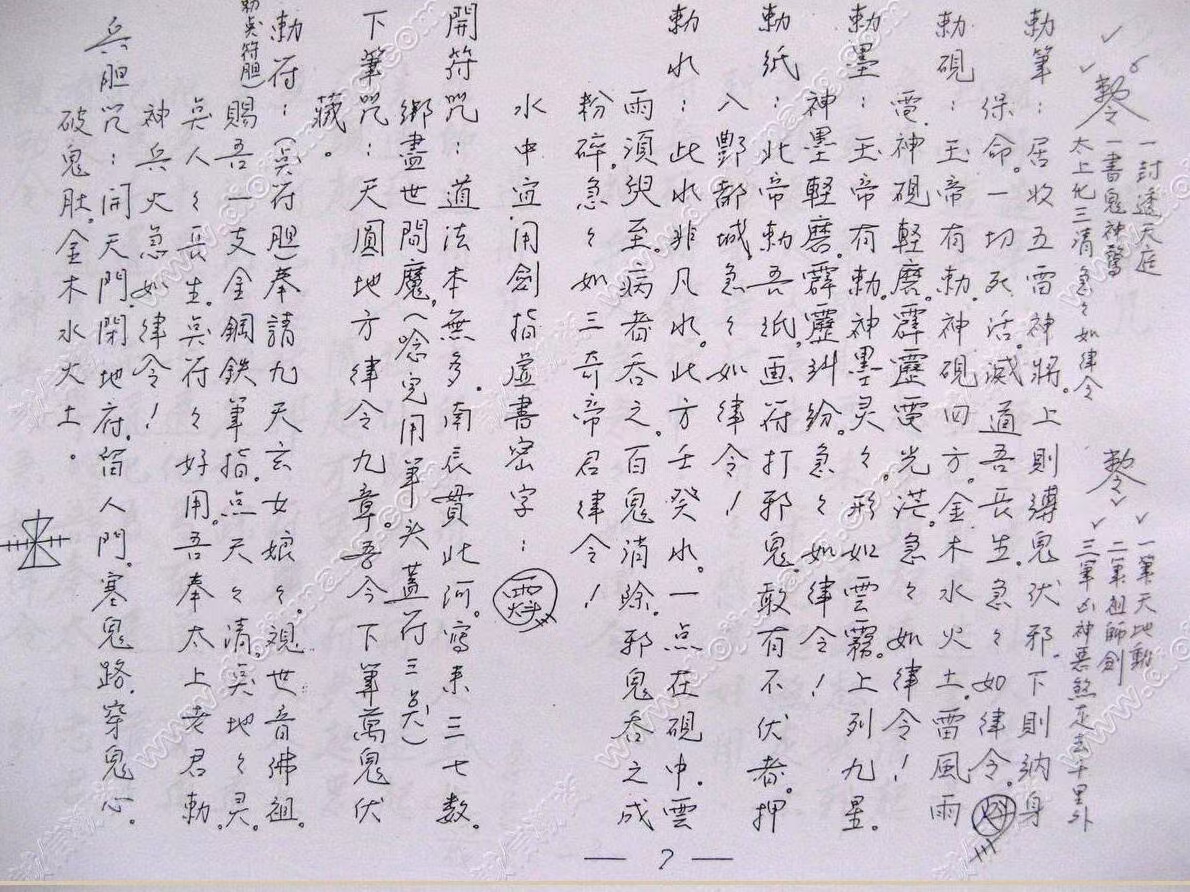 一討透天庭
一書鬼神驚
太上化三清急々如律令
一筆天地動
二筆祖師劍
三筆凶神惡煞走去千里外
勅筆：居收五雷神將。上則縛鬼伏邪。下則納身
保命。一切死活。滅道吾長生。急々如律令。
勅硯：玉帝有勅。神硯四方。金木水火土。雷風雨
電。神硯軽磨。霹靂電光茫。急々如律令！
勅墨：玉帝有勅。神墨灵々。形如雲霧。上列九星。
神墨軽磨。霹靂糾紛。急々如律令！
勅紙：北帝勅吾紙。画符打邪鬼。敢有不伏者。押
入酆都城。急々如律令！
勅水：此水非凡水。北方壬癸水。一点在硯中。雲
雨須臾至。病者吞之。百鬼消除。邪鬼吞之成
粉碎。急々如三奇帝君律令！
水中宜用劍指虛書密字：
開符咒：道法本無多。南辰貫北河。寫来三七数。
綁盡世間魔。(唸完用筆头蓋符三点)
下筆咒：天圓地方律令九章。吾今下筆萬鬼伏
藏。
勅符：(点符胆)奉請九天玄女娘々。視世音佛祖。
勅点符胆)賜吾一支金鋼鉄筆指。点天々清。点地々灵。
点人々長生。点符々好用。吾奉太上老君勅。
神兵火急如律令！
兵胆咒：開天門。閉地府。留人門。塞鬼路。穿鬼心。
破鬼肚。金木水火土。
— 7 —